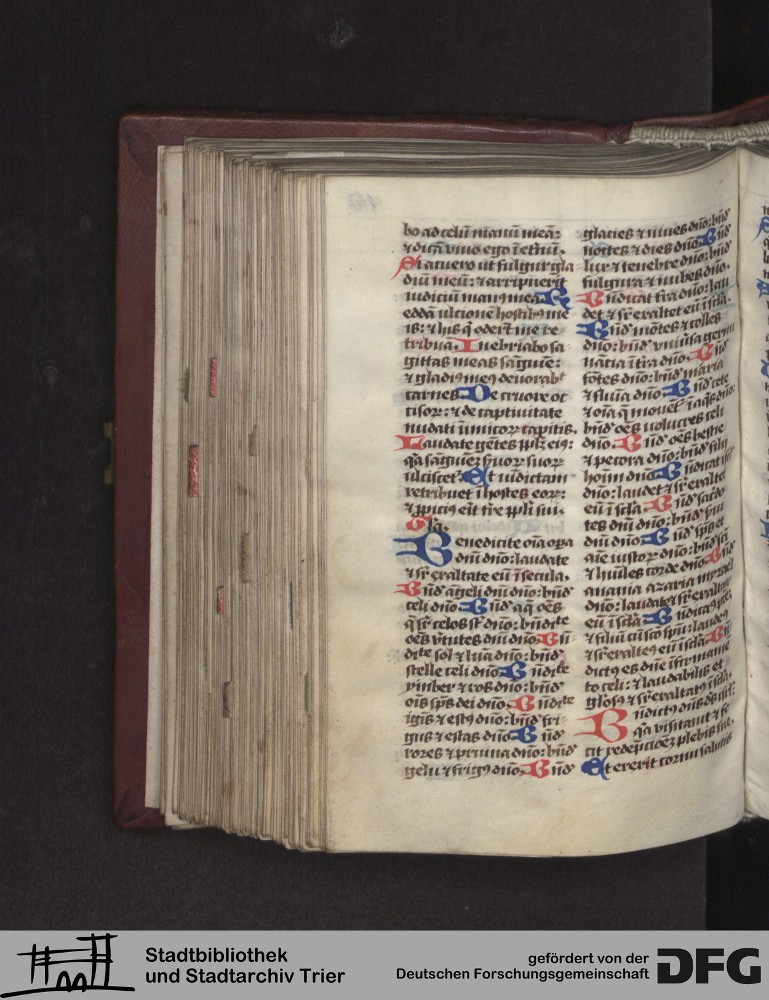 bo ad celū manū meā:
⁊ dicā viuo ego ī et̄nū.
Si acuero ut fulgur gla-
diū meū: ⁊ arripuerit
iudiciū manꝰ mea. R
eddā ultionē hostibꝰ me
is: ⁊ hiis q̄ oder̄t me re
tribuā. Inebriabo sa-
gittas meas sāguīe:
⁊ gladiꝰ meꝰ deuorabt
carnes. De cruore oc
cisoꝝ: ⁊ de captiuitate
nudati inimicoꝝ capitis.
Laudate gētes pplꝫ eiꝰ:
q̄a sāguinē ẜuoꝝ suoꝝ
ulciscet̄. Et vīdictam
retribuet ī hostes eoꝝ:
⁊ ꝓpiciꝰ eīt tr̄e ppli sui.
Benedicite oīa oꝑa
dn̄i dn̄o: laudate
⁊ suꝑexaltate eū ī secula.
Bn̄d āgeli dn̄i dn̄o: bn̄d
celi dn̄o. Bn̄d aq̄ oēs
q̄ suꝑ celos sт̄ dn̄o: bn̄dite
oēs v̓tutes dn̄i dn̄o. Bn̄
dite sol ⁊ luā dn̄o: bn̄d
stelle celi dn̄o. Bn̄dite
ymber ⁊ ros dn̄o: bn̄d
oīs sp̄s dei dn̄o. Bn̄dite
ignis ⁊ estꝰ dn̄o: bn̄d fri-
gus ⁊ estas dn̄o. Bn̄d
rores ⁊ pruina dn̄o: bn̄d
gelu ⁊ frigꝰ dn̄o. Bn̄d
glacies ⁊ niues dn̄o: bn̄d
noctes ⁊ dies dn̄o. Bn̄d
lux ⁊ tenebre dn̄o: bn̄d
fulgura ⁊ nubes dn̄o.
Bn̄dicat t̄ra dn̄o: lau
det ⁊ suꝑexaltet eū ī scl̄a.
Bn̄d mōtes ⁊ colles
dn̄o: bn̄d vniūsa germi
nātia ī t̄ra dn̄o. Bn̄d
fōtes dn̄o: bn̄d maria
⁊ flūīa dn̄o. Bn̄d cete
⁊ oīa q̄ mouēt̄ ī aq̄s dn̄o:
bn̄d oēs volucres celi
dn̄o. Bn̄d oēs bestie
⁊ pecora dn̄o: bn̄d filii
hoīm dn̄o. Bn̄dicat isrl̄
dn̄o: laudet ⁊ suꝑexaltet
eū ī scl̄a. Bn̄d sac̄do
tes dn̄i dn̄o: bn̄d ẜui
dn̄i dn̄o. Bn̄d sp̄s et
aīe iustoꝝ dn̄o: bn̄d sc̄i
⁊ hūiles corde dn̄o. Bn̄d
anania azaria mysael
dn̄o: laudate ⁊ suꝑexaltate
eū ī scl̄a. Bn̄dicaꝰ pr̄eꝫ
⁊ filiū cū sco spū: laudeꝰ
⁊ suꝑexalteꝰ eū ī scl̄a. Bn̄
dictꝰ es dn̄e ī firmamē
to celi: ⁊ laudabilis et
gl̄osꝰ ⁊ suꝑexaltatꝰ ī scl̄a.
Bn̄dictꝰ dn̄s ds̄ isrl̄:
q̄a visitauit ⁊ fe
cit redēpcioēꝫ plebis sue.
Et erexit cornu salutis
Stadtbibliothek
und Stadtarchiv Trier
gefördert von der
Deutschen Forschungsgemeinschaft
DFG